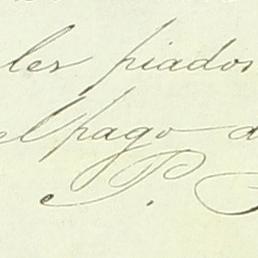 les piados
el pago d
P.